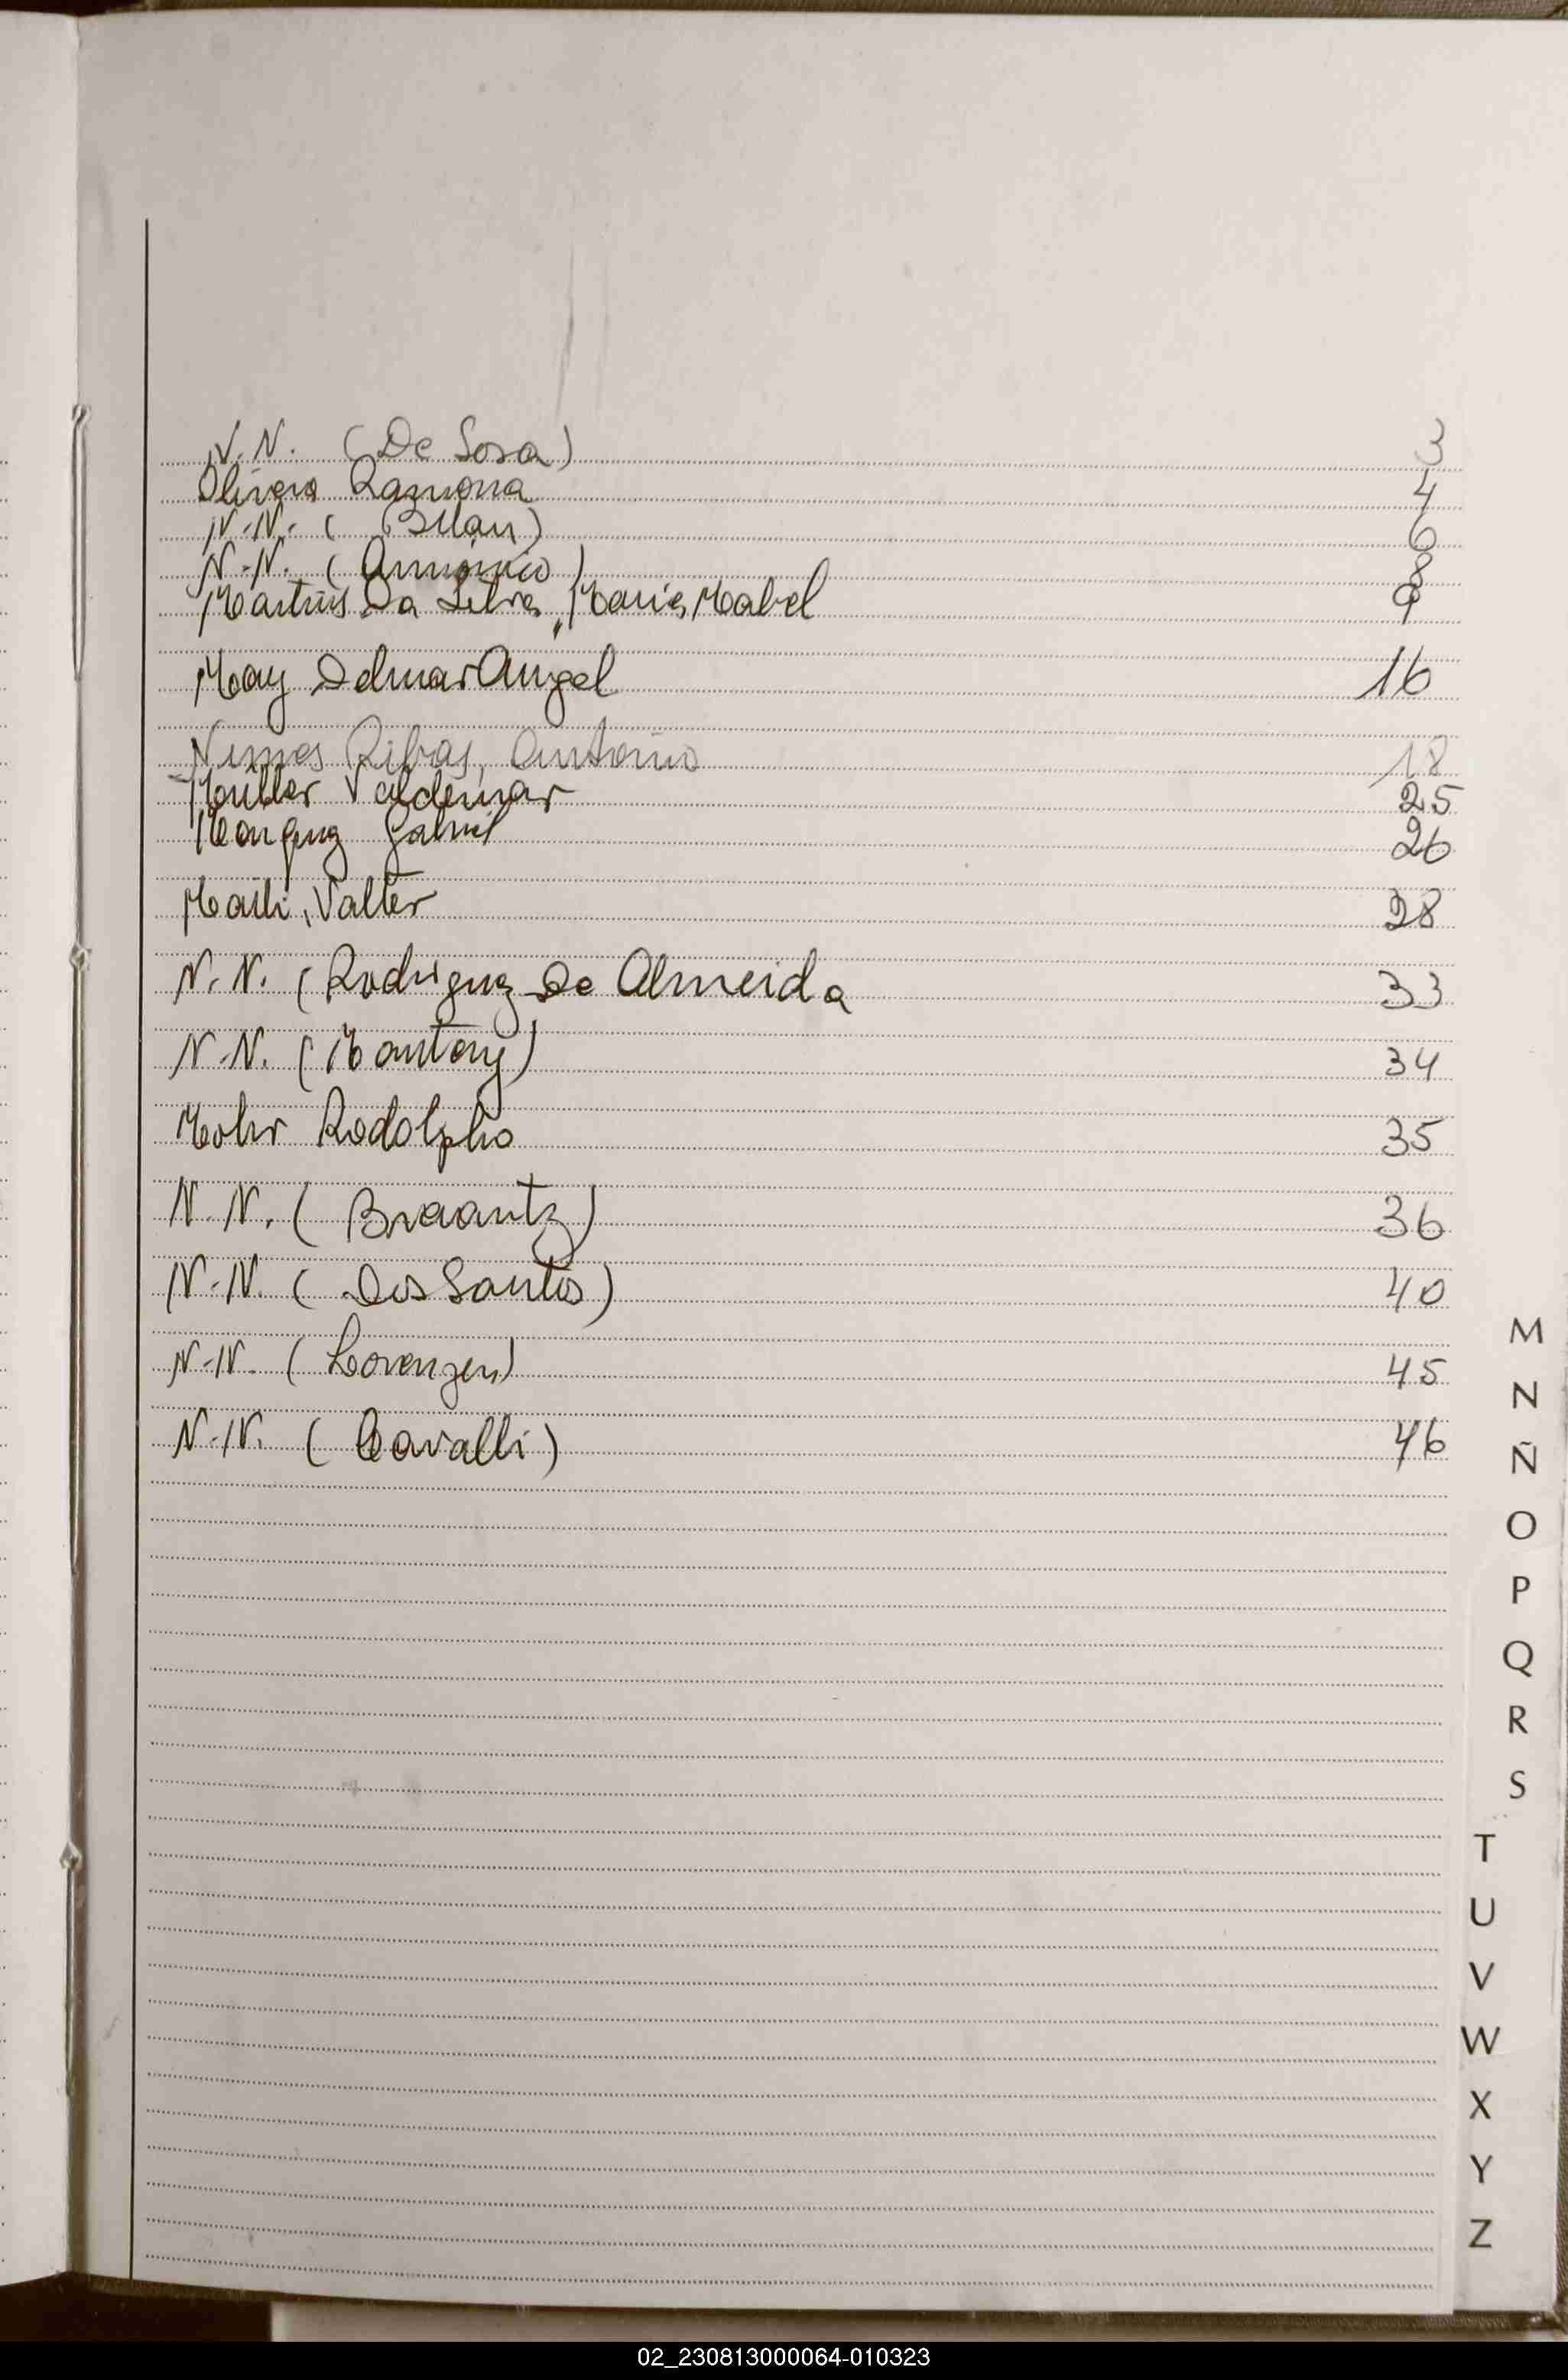 N.N. (De Sosa) 3
Olivera Ramona 4
N.N. ( 6
N.N. ( 8
Martins Da Silva, Maria Mabel 9
May Delmar Angel 16
Nunes Ribas, Antonio 18
Müller Valdemar 25
Gabriel 26
Valter 28
N.N. (Rodriguez De Almeida 33
N.N. ( 34
Mohr Rodolpho 35
N.N. ( 36
N.N. (Dos Santos) 40
N.N. (Lorenzen) 45
N.N. (Cavalli) 46
M
N
Ñ
O
P
Q
R
S
T
U
V
W
X
Y
Z
02_230813000064-010323